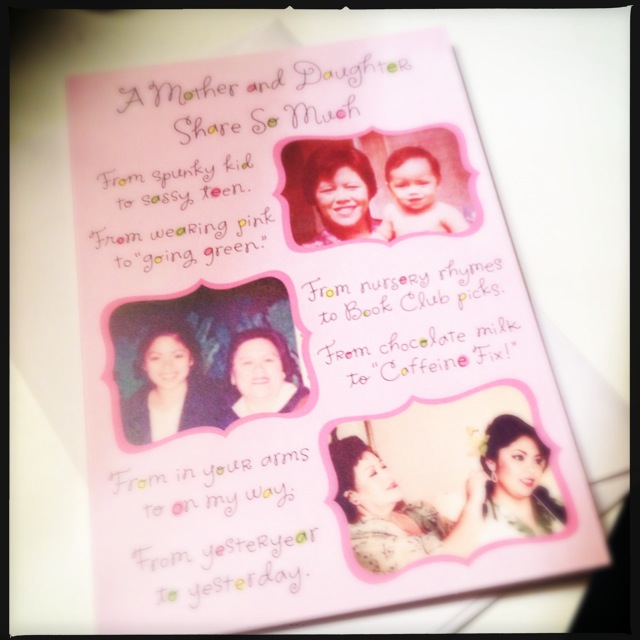 A Mother and Daughter
Share So Much
From spunky kid
to sassy teen.
From wearing pink
to "going green."
From nursery rhymes
to Book Club picks.
From chocolate milk
to "Caffeine Fix!"
From in your arms
to on my way.
From yesteryear
to yesterday.